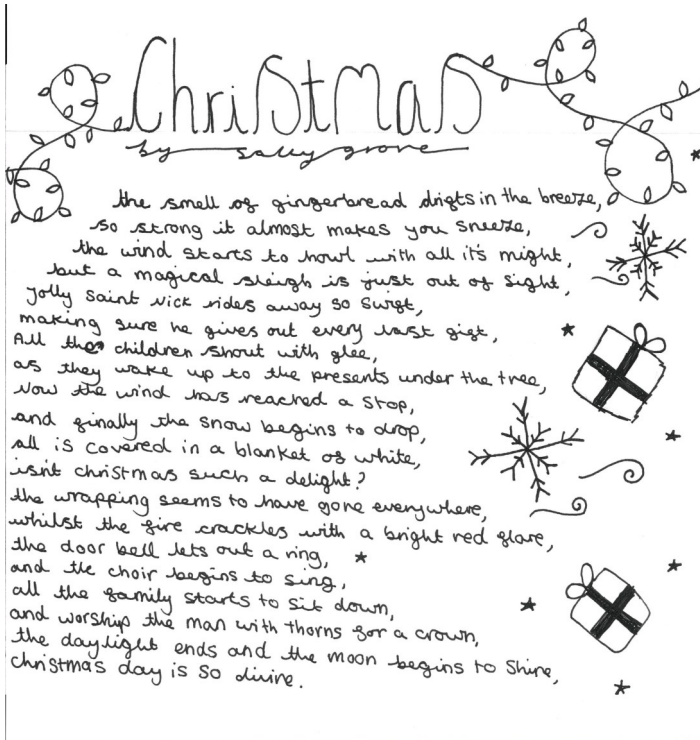 Christmas
by sally grove
the smell of gingerbread drifts in the breeze,
so strong it almost makes you sneeze,
the wind starts to howl with all it's might,
but a magical sleigh is just out of sight,
jolly Saint Nick rides away so swift,
making sure he gives out every last gift,
All the children shout with glee,
as they wake up to the presents under the tree,
Now the wind has reached a stop,
and finally the snow begins to drop,
all is covered in a blanket of white,
isn't christmas such a delight?
the wrapping seems to have gone everywhere,
whilst the fire crackles with a bright red glare,
the door bell lets out a ring,
and the choir begins to sing,
all the family starts to sit down,
and worship the man with thorns for a crown,
the daylight ends and the moon begins to shine,
christmas day is so divine.